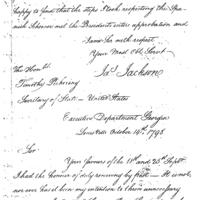 happy to find that the steps I took respecting the Spa-
nish Schooner met the Presidents entire approbation and
I am Sir with respect
Your Most Obt Servt
Jas Jackson
The Honble
Timothy Pickering
Secretary of State - United States
Executive Department Georgia
Louisville October 14th, 1798
Sir
Your favours of the 18th and 25th Septr
I had the honour of duly receiving by It is not,
nor ever has it been my intention to throw unnecessary